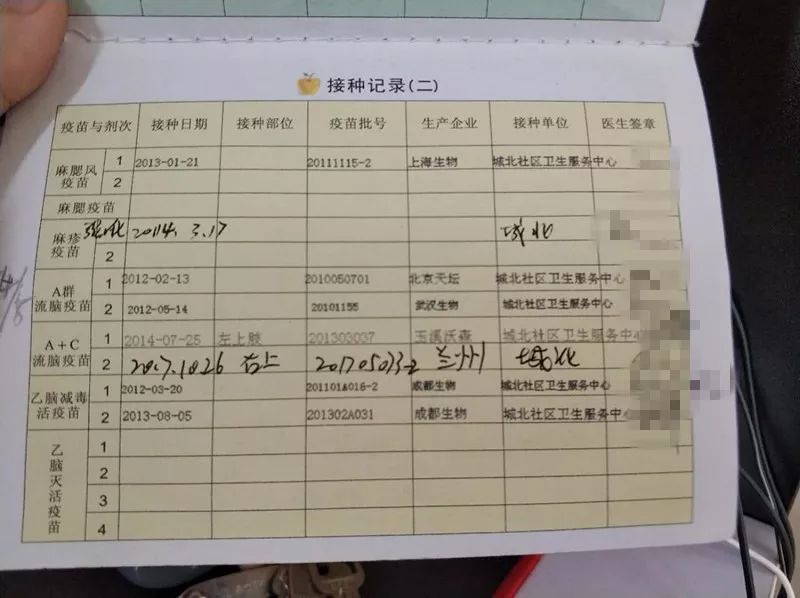 接种记录(二)
疫苗与剂次 接种日期 接种部位 疫苗批号 生产企业 接种单位 医生签章
麻腮风疫苗 1 2013-01-21 20111115-2 上海生物 城北社区卫生服务中心
2
麻腮疫苗
麻疹疫苗 强化 2014.3.17 城北
2
A群流脑疫苗 1 2012-02-13 2010050701 北京天坛 城北社区卫生服务中心
2 2012-05-14 20101155 武汉生物 城北社区卫生服务中心
A+C流脑疫苗 1 2014-07-25 左上肢 201303037 玉溪沃森 城北社区卫生服务中心
2 2017.10.26 右上 201705033-2 兰州 城北
乙脑减毒活疫苗 1 2012-03-20 201101A016-2 成都生物 城北社区卫生服务中心
2 2013-08-05 201302A031 成都生物 城北社区卫生服务中心
乙脑灭活疫苗 1
2
3
4